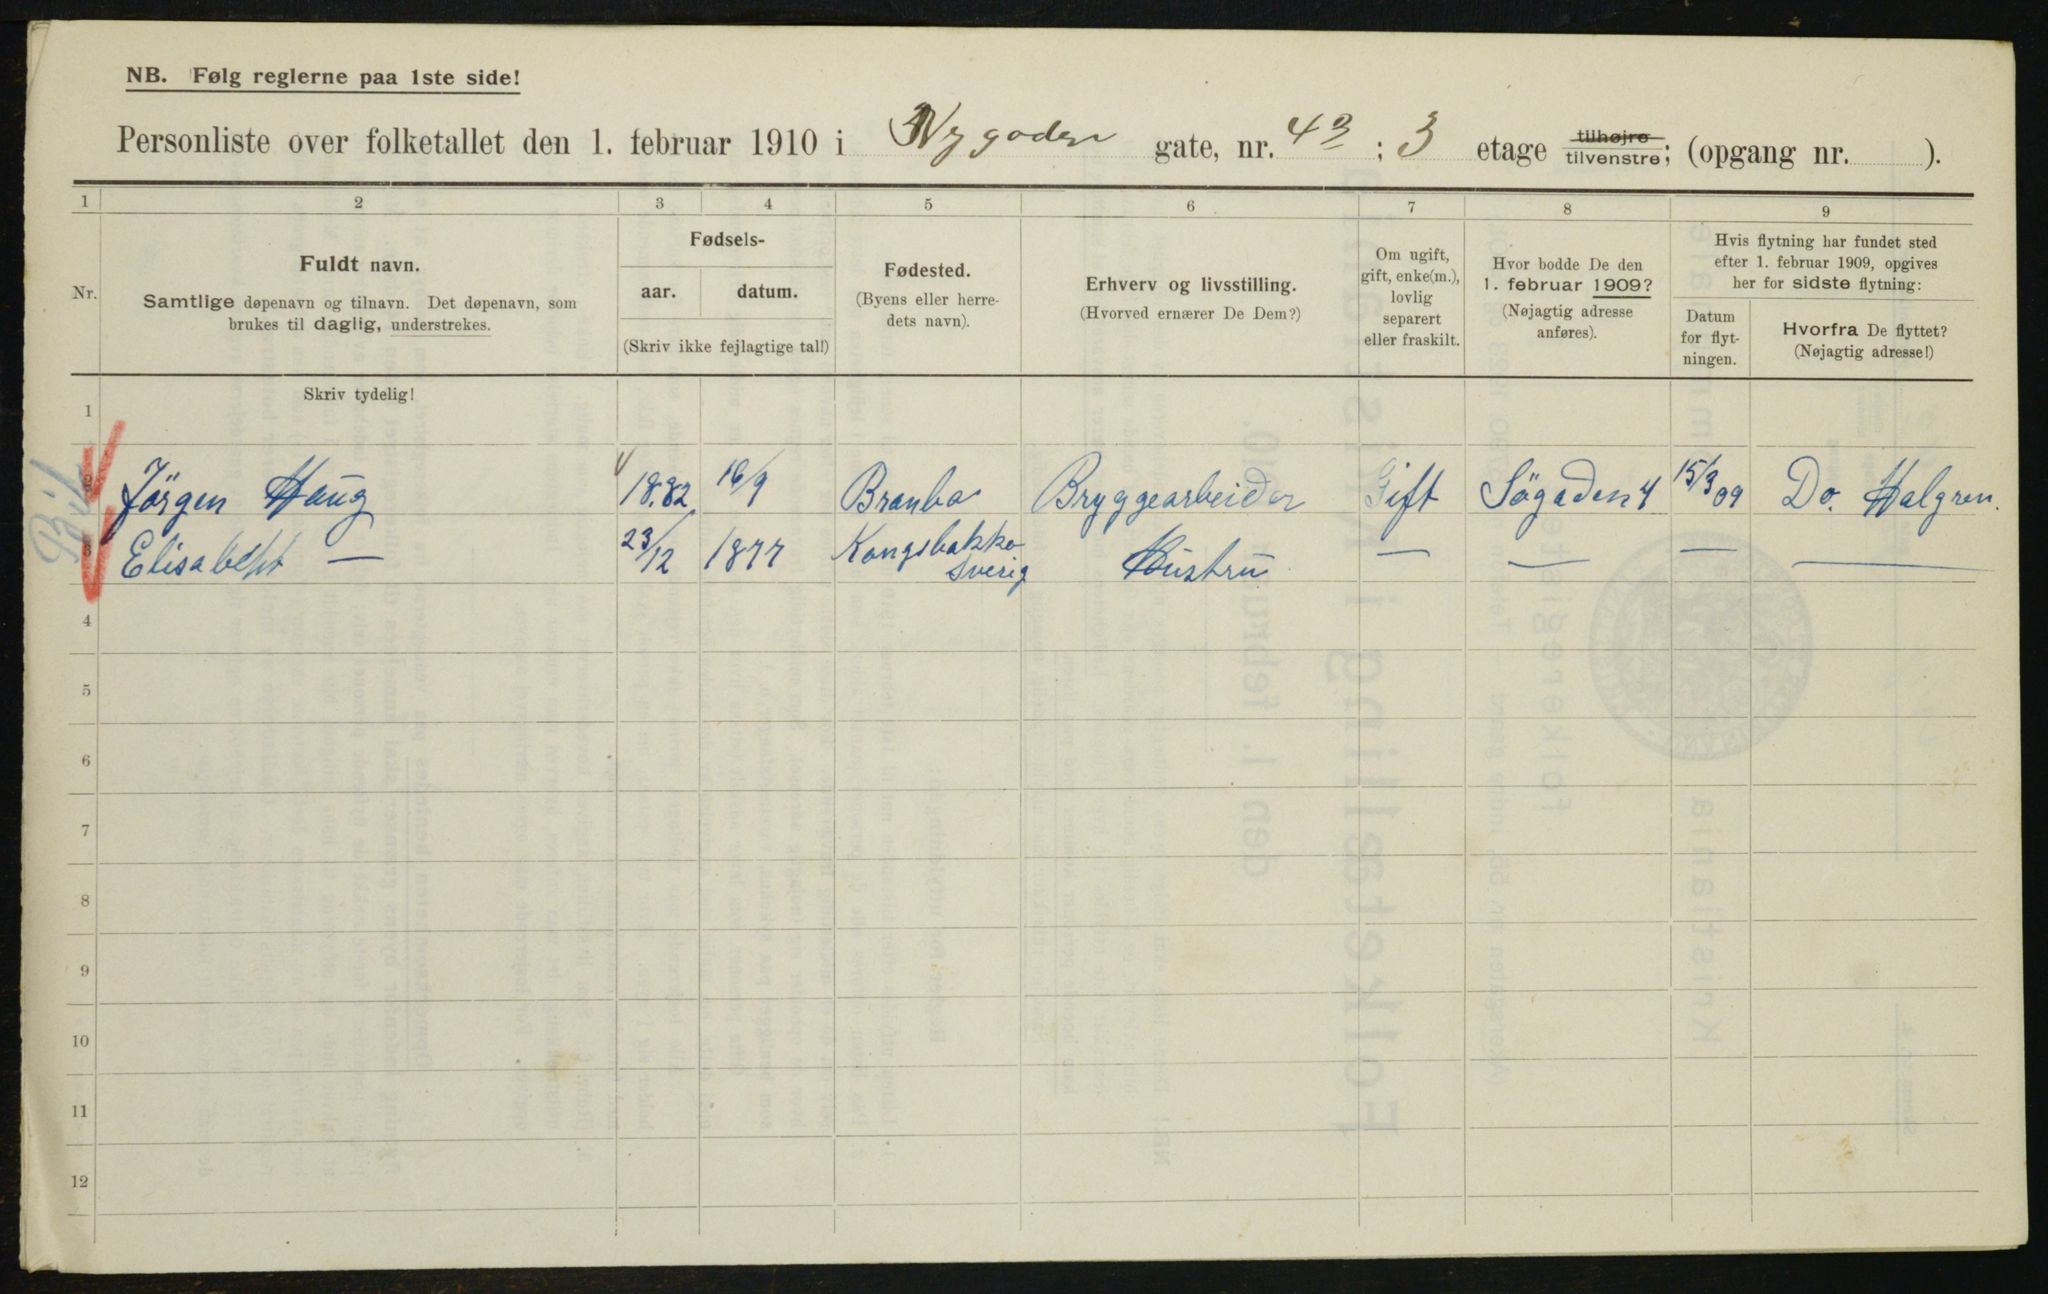 NB. Følg reglerne paa 1ste side!
Personliste over folketallet den 1. februar 1910 i Nygaden gate, nr. 43 ; 3 etage tilhøjre tilvenstre; (opgang nr. ).
1 2 3 4 5 6 7 8 9
Nr.
Fuldt navn.
Samtlige døpenavn og tilnavn. Det døpenavn, som
brukes til daglig, understrekes.
Fødsels-
aar. datum.
(Skriv ikke fejlagtige tal!)
Fødested.
(Byens eller herre-
dets navn).
Erhverv og livsstilling.
(Hvorved ernærer De Dem?)
Om ugift,
gift, enke(m.),
lovlig
separert
eller fraskilt.
Hvor bodde De den
1. februar 1909?
(Nøjagtig adresse
anføres).
Hvis flytning har fundet sted
efter 1. februar 1909, opgives
her for sidste flytning:
Datum
for flyt-
ningen.
Hvorfra De flyttet?
(Nøjagtig adresse!)
Skriv tydelig!
1
2 Jörgen Haug 1882 16/9 Branbo Bryggearbeider Gift Søgaden 4 15/3 09 Do. Halgren.
3 Elisabeht — 23/12 1877 Kongsbakke Sverig Hustru — — — —
4
5
6
7
8
9
10
11
12